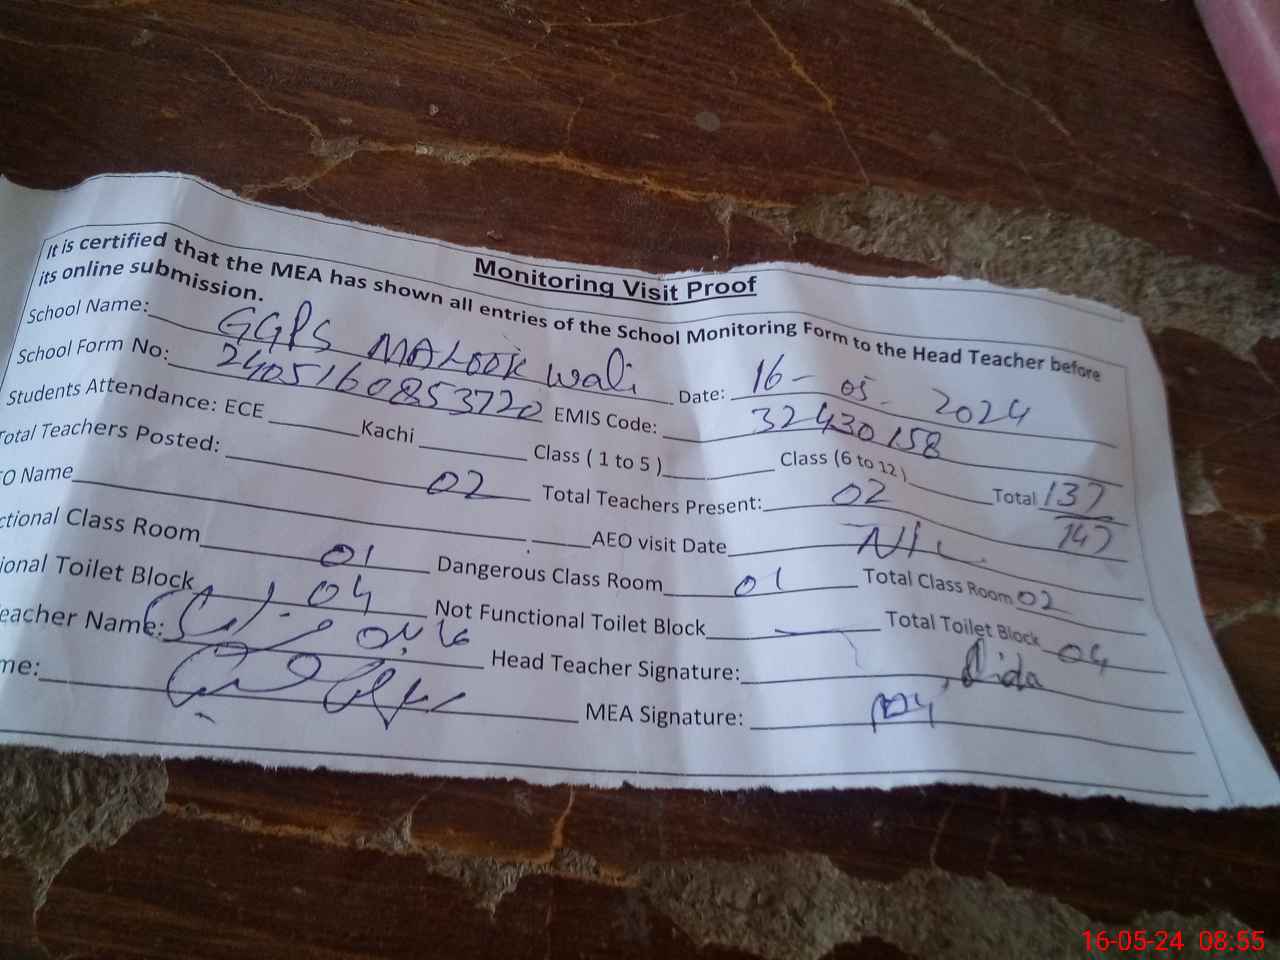 Monitoring Visit Proof
It is certified that the MEA has shown all entries of the School Monitoring Form to the Head Teacher before
its online submission.
School Name: GGPS MALOOK Wali Date: 16-05-2024
School Form No: 240516085372 EMIS Code: 32430158
Students Attendance: ECE Kachi Class ( 1 to 5 ) Class (6 to 12) Total 137
147
Total Teachers Posted: 02 Total Teachers Present: 02
O Name AEO visit Date NIL
ctional Class Room 01 Dangerous Class Room 01 Total Class Room 02
ional Toilet Block 04 Not Functional Toilet Block — Total Toilet Block 04
eacher Name: Head Teacher Signature: Nida
me: MEA Signature:
16-05-24 08:55